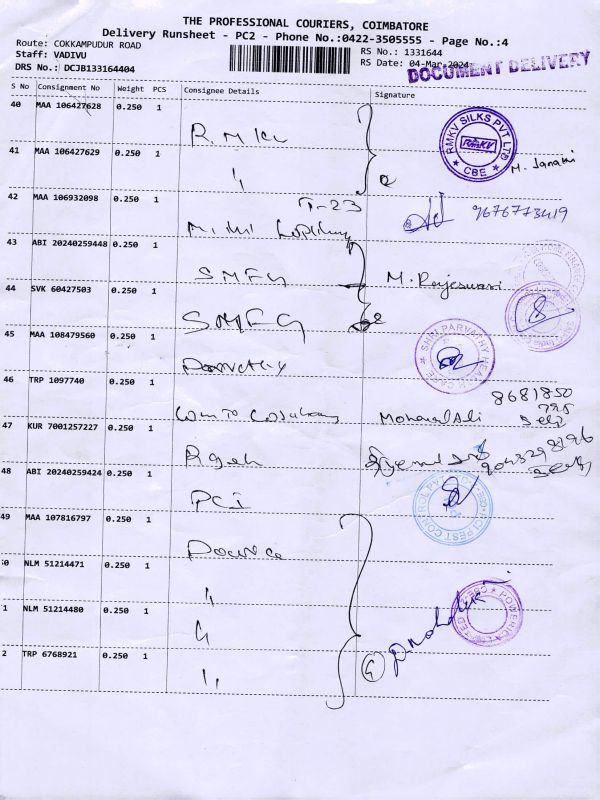 THE PROFESSIONAL COURIERS, COIMBATORE
Delivery Runsheet - PC2 - Phone No.:0422-3505555 - Page No.:4
Route: COKKAMPUDUR ROAD
RS No.: 1331644
Staff: VADIVU
RS Date: 04-Mar-2024
DRS No.: DCJB133164404
DOCUMENT DELIVERY
S No Consignment No Weight PCS Consignee Details Signature
40 MAA 106427628 0.250 1
R.M.K.V
RMKV SILKS PVT LTD
RMKV
CBE
41 MAA 106427629 0.250 1
M. Janaki
42 MAA 106932098 0.250 1
T-23
9676773419
43 ABI 20240259448 0.250 1
SMFG
M. Rajeswari
44 SVK 60427503 0.250 1
SMFG
45 MAA 108479560 0.250 1
Parvathy
SHRI PARVATHY
46 TRP 1097740 0.250 1
Mohamed Ali
8681850
795
Self
47 KUR 7001257227 0.250 1
Rajesh
48 ABI 20240259424 0.250 1
PCI
PEST CONTROL
49 MAA 107816797 0.250 1
Powrica
0 NLM 51214471 0.250 1
1 NLM 51214480 0.250 1
POWERICA LIMITED
2 TRP 6768921 0.250 1
4